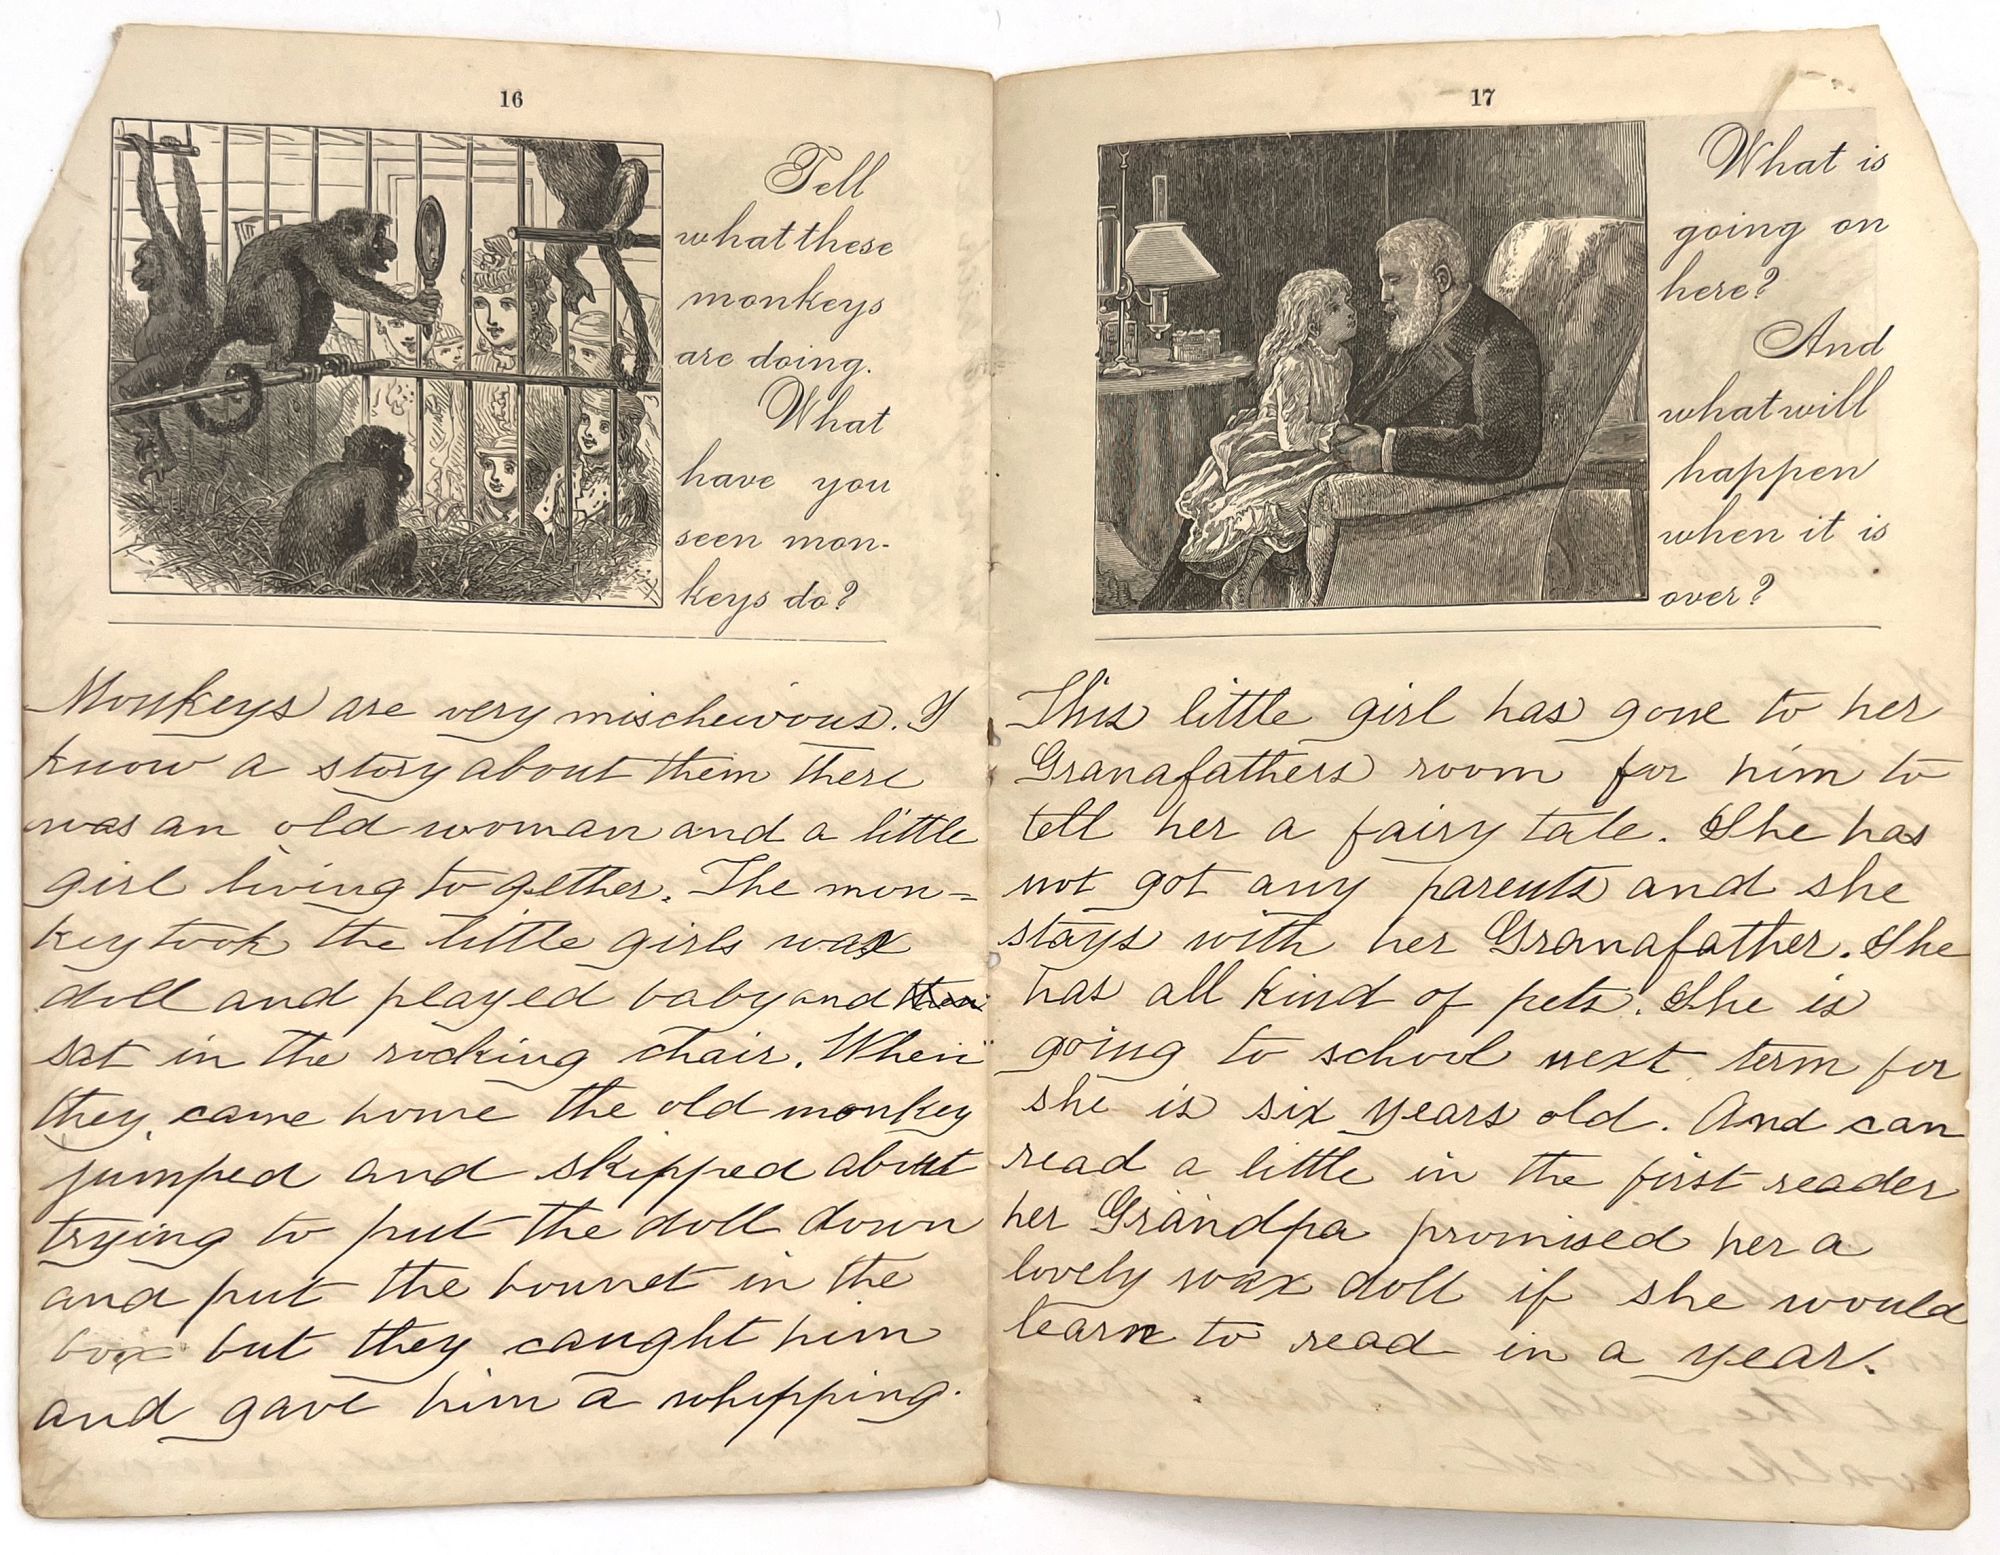 16
Tell
what these
monkeys
are doing.
What
have you
seen mon-
keys do?
Monkeys are very mischeivous. I
know a story about them there
was an old woman and a little
girl living to gether. The mon-
key took the little girls wax
doll and played baby and then
sat in the rocking chair. When
they came home the old monkey
jumped and skipped about
trying to put the doll down
and put the bonnet in the
box but they caught him
and gave him a whipping.
17
What is
going on
here?
And
what will
happen
when it is
over?
This little girl has gone to her
Grandfathers room for him to
tell her a fairy tale. She has
not got any parents and she
stays with her Grandfather. She
has all kind of pets. She is
going to school next term for
she is six years old. And can
read a little in the first reader
her Grandpa promised her a
lovely wax doll if she would
learn to read in a year.